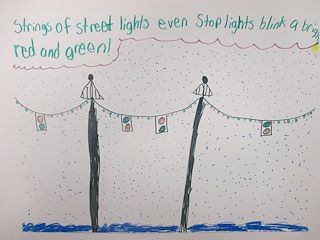 Strings of street lights even Stop lights blink a brigh
red and green!